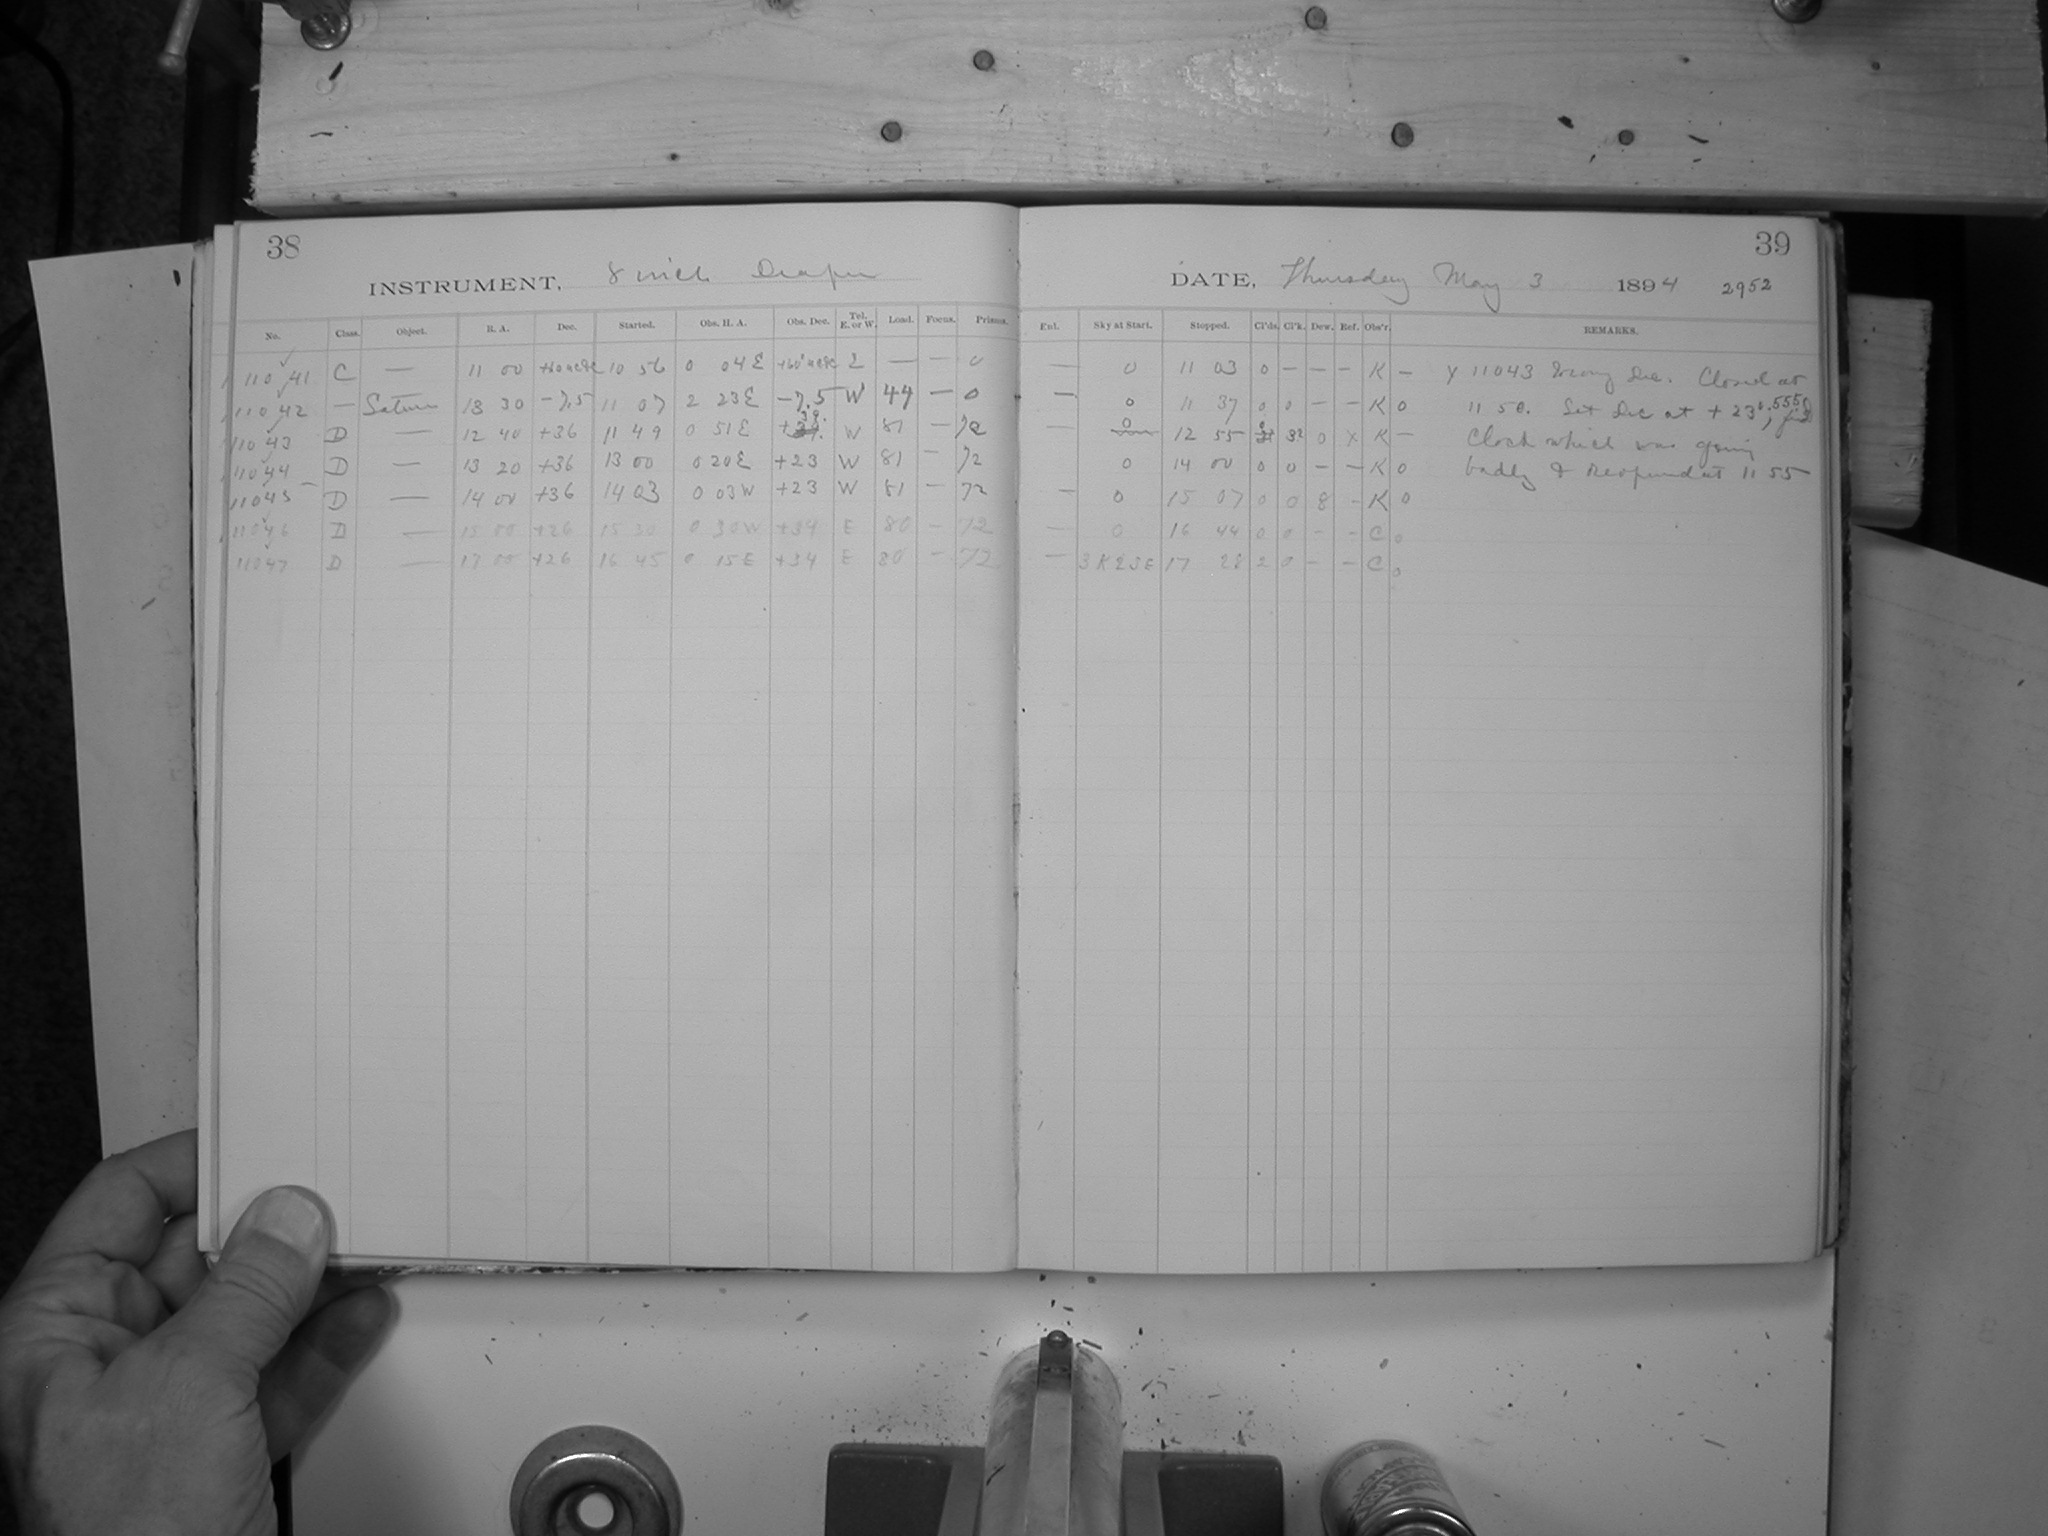 38
INSTRUMENT, 8 inch Draper
No. Class. Object. R. A. Dec. Started. Obs. H. A. Obs. Dec. Tel. E. or W. Load. Focus. Prisms.
11041 C — 11 00 10 56 0 04 E E — — 0
11042 — Saturn 13 30 -7.5 11 07 2 23 E -7.5 W 44 — 0
11043 D — 12 40 +36 11 49 0 51 E W 81 — 72
11044 D — 13 20 +36 13 00 0 20 E +23 W 81 — 72
11045 D — 14 00 +36 14 03 0 03 W +23 W 81 — 72
11046 D — 15 00 +26 15 30 0 30 W +34 E 80 — 72
11047 D — 17 00 +26 16 45 0 15 E +34 E 80 — 72
39
DATE, Thursday May 3 1894 2952
Enl. Sky at Start. Stopped. Cl'ds. Cl'k. Dew. Ref. Obs'r. REMARKS.
— 0 11 03 0 — — — K — Y 11043 Wrong Dec. Closed at
— 0 11 37 0 0 — — K 0 11 50. Set Dec at +23°,
— 0 12 55 32 0 X K — Clock which was going
0 14 00 0 0 — — K 0 badly & Reopened at 11 55
— 0 15 07 0 0 8 — K 0
— 0 16 44 0 0 — — C 0
— 3 K 2 SE 17 28 2 0 — — C 0